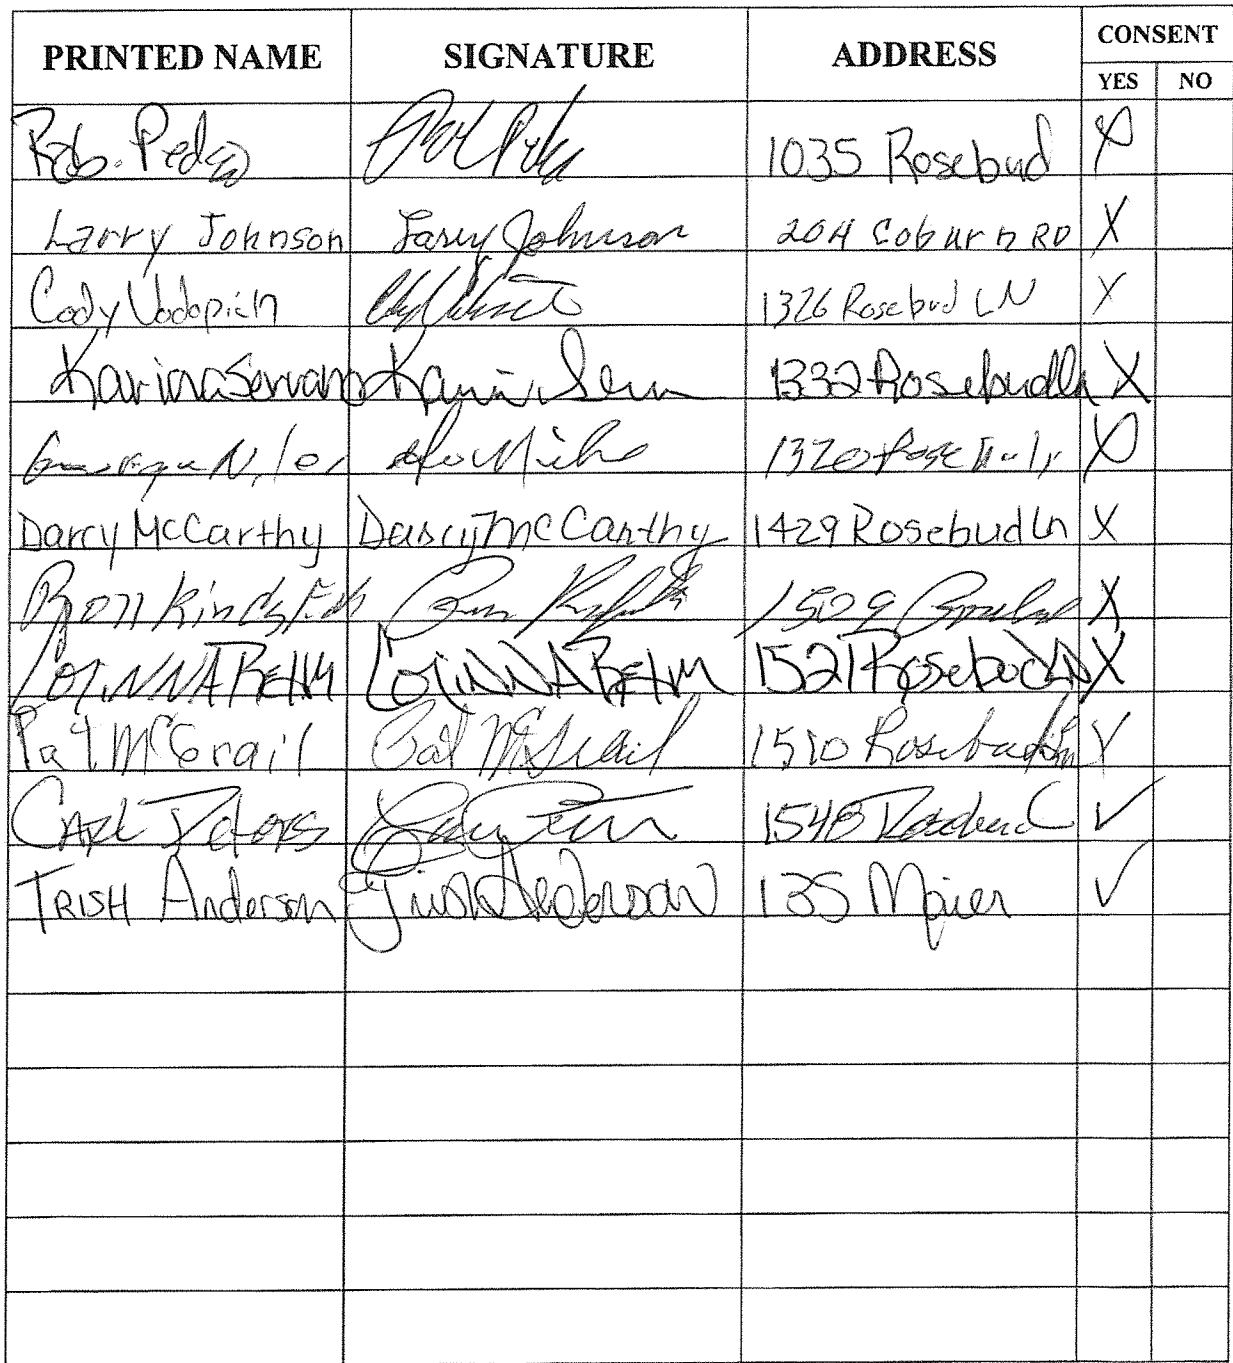 PRINTED NAME SIGNATURE ADDRESS CONSENT
YES NO
Rob. 1035 Rosebud X
Larry Johnson Larry Johnson 204 Coburn RD X
Cody Vodopich 1326 Rosebud LN X
Karina Serrano 1332 Rosebud Ln X
1320 X
Darcy McCarthy Darcy McCarthy 1429 Rosebud Ln X
Ron 1509 X
CorINNA REHM CorINNA REHM 1521 Rosebud LN X
Pat McGrail Pat McGrail 1510 Rosebud Ln X
CARL Peters 1548 Rosebud ✓
TRISH Anderson Trish Anderson 135 Maier ✓